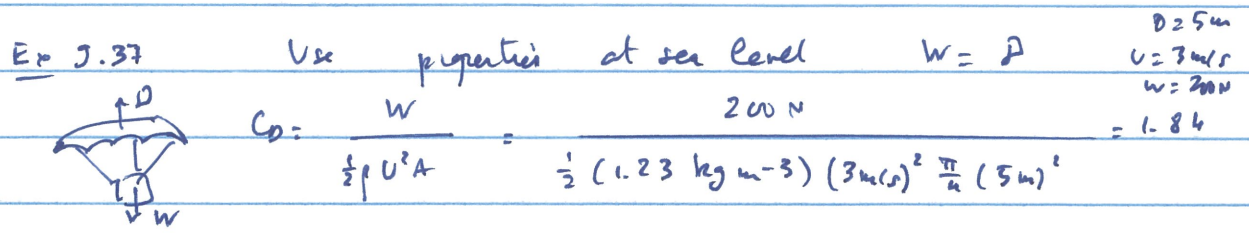 D = 5m
Ex 9.37 Use properties at sea level W = D U = 3 m/s
W = 200 N
D
C_D = W / (½ ρ U² A) = 200 N / (½ (1.23 kg m-3) (3m/s)² π/4 (5m)²) = 1.84
W